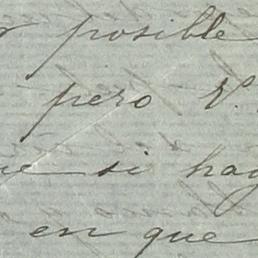 posible
pero V.
si hay
en que